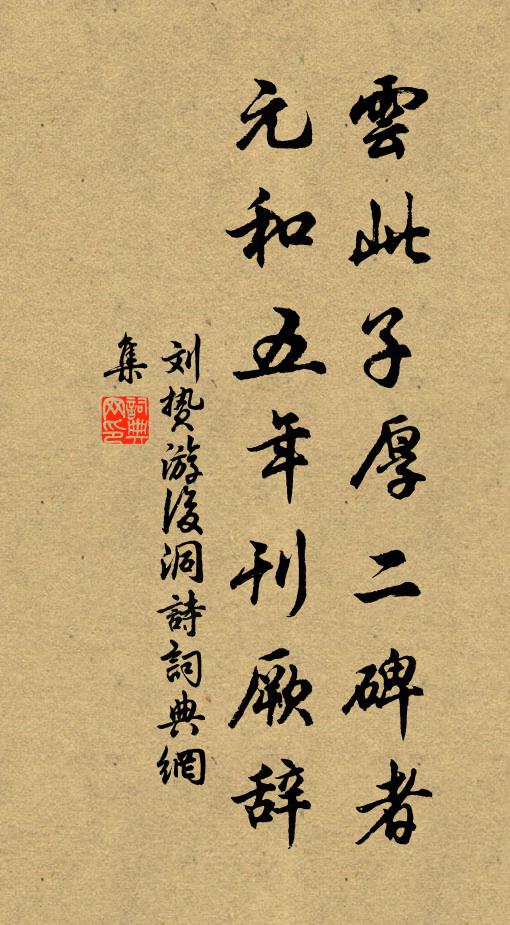 雲此子厚二碑者
元和五年刊厥辞
刘挚游浯洞詩詞典網
集
詞典网印